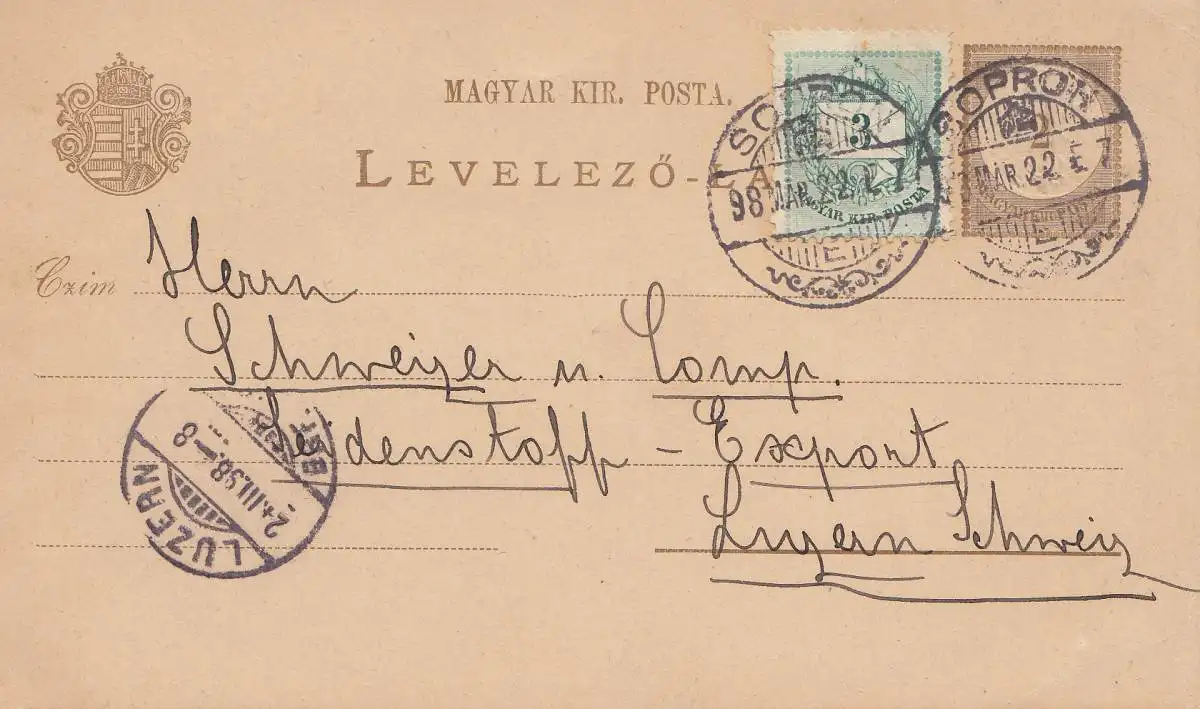 MAGYAR KIR. POSTA.
LEVELEZŐ-LA
3
MAGYAR KIR. POSTA
2
SOPRON
98 MÁR. 22. E 7
E
SOPRON
MÁR. 22 E 7
E
Czim Herrn
Schweizer u. Comp.
Seidenstoff - Export
Luzern Schweiz
LUZERN
24.III.98.–8